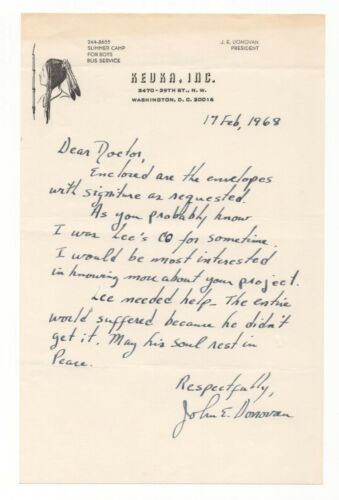 244-8655
SUMMER CAMP
FOR BOYS
BUS SERVICE
J. E. DONOVAN
PRESIDENT
KEUKA, INC.
3470-29TH ST., N. W.
WASHINGTON, D. C. 20016
17 Feb, 1968
Dear Doctor,
Enclosed are the envelopes
with signiture as requested.
As you probably know
I was Lee's CO for sometime.
I would be most interested
in knowing more about your project.
Lee needed help - The entire
world suffered because he didn't
get it. May his soul rest in
Peace.
Respectfully,
John E. Donovan